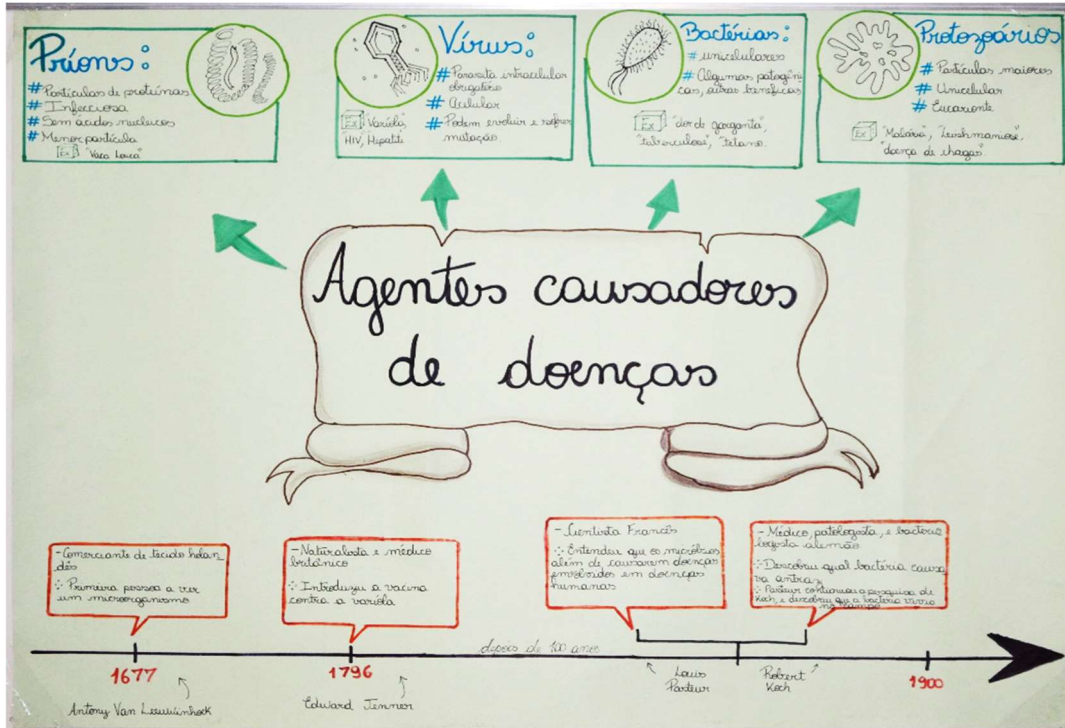 Príons:
# Partículas de proteínas
# Infecciosa
# Sem ácidos nucleicos
# Menor partícula
Ex "Vaca Louca"
Vírus:
# Parasita intracelular
obrigatório
# Acelular
# Podem evoluir e sofrer
mutação.
Ex Varíola,
HIV, Hepatite
Bactérias:
# unicelulares
# Algumas patogêni
cas, outras benéficas
Ex "dor de garganta",
"tuberculose", "tétano".
Protozoários
# Partículas maiores
# Unicelular
# Eucarionte
Ex "Malária", "Leishmaniose"
"doença de chagas".
Agentes causadores
de doenças
- Comerciante de tecidos holan_
dês
∴ Primeira pessoa a ver
um microorganismo
- Naturalista e médico
britânico
∴ Introduziu a vacina
contra a varíola
- Cientista Francês
∴ Entendeu que os micróbios
além de causarem doenças
envolvidos em doenças
humanas
- Médico, patologista, e bacterio
logista alemão
∴ Descobriu qual bactéria causa
va antraz
∴ Pasteur continuou a pesquisa de
Koch, e descobriu que a bactéria vivia
no
depois de 100 anos
1677
1796
1900
Antony Van Leeuwinhock
Edward Jenner
Louis
Pasteur
Robert
Koch